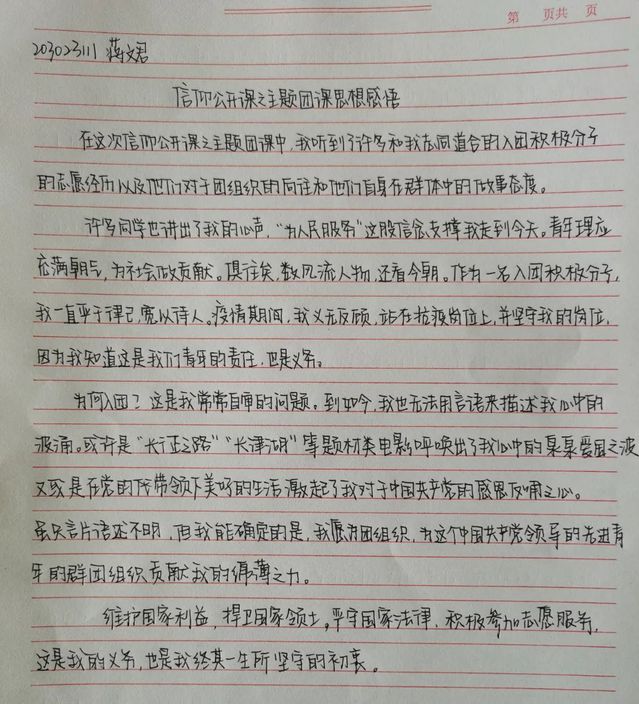 第 页共 页
203023111 蒋文君
信仰公开课之主题团课思想感悟
在这次信仰公开课之主题团课中,我听到了许多和我志同道合的入团积极分子
的志愿经历以及他们对于团组织的向往和他们自身在群体中的做事态度。
许多同学也讲出了我的心声,"为人民服务"这股信念支撑我走到今天。青年理应
充满朝气,为社会做贡献。俱往矣,数风流人物,还看今朝。作为一名入团积极分子,
我一直严于律己,宽以待人。疫情期间,我义无反顾,站在抗疫岗位上,并坚守我的岗位,
因为我知道这是我们青年的责任,也是义务。
为何入团?这是我常常自审的问题。到如今,我也无法用言语来描述我心中的
波涌。或许是"长征之路""长津湖"等题材类电影呼唤出了我心中的袅袅爱国之波
又或是在党的带领下美好的生活激起了我对于中国共产党的感恩反哺之心。
虽只言片语还不明,但我能确定的是,我愿为团组织,为这个中国共产党领导的先进青
年的群团组织贡献我的绵薄之力。
维护国家利益,捍卫国家领土,严守国家法律,积极参加志愿服务,
这是我的义务,也是我终其一生所坚守的初衷。